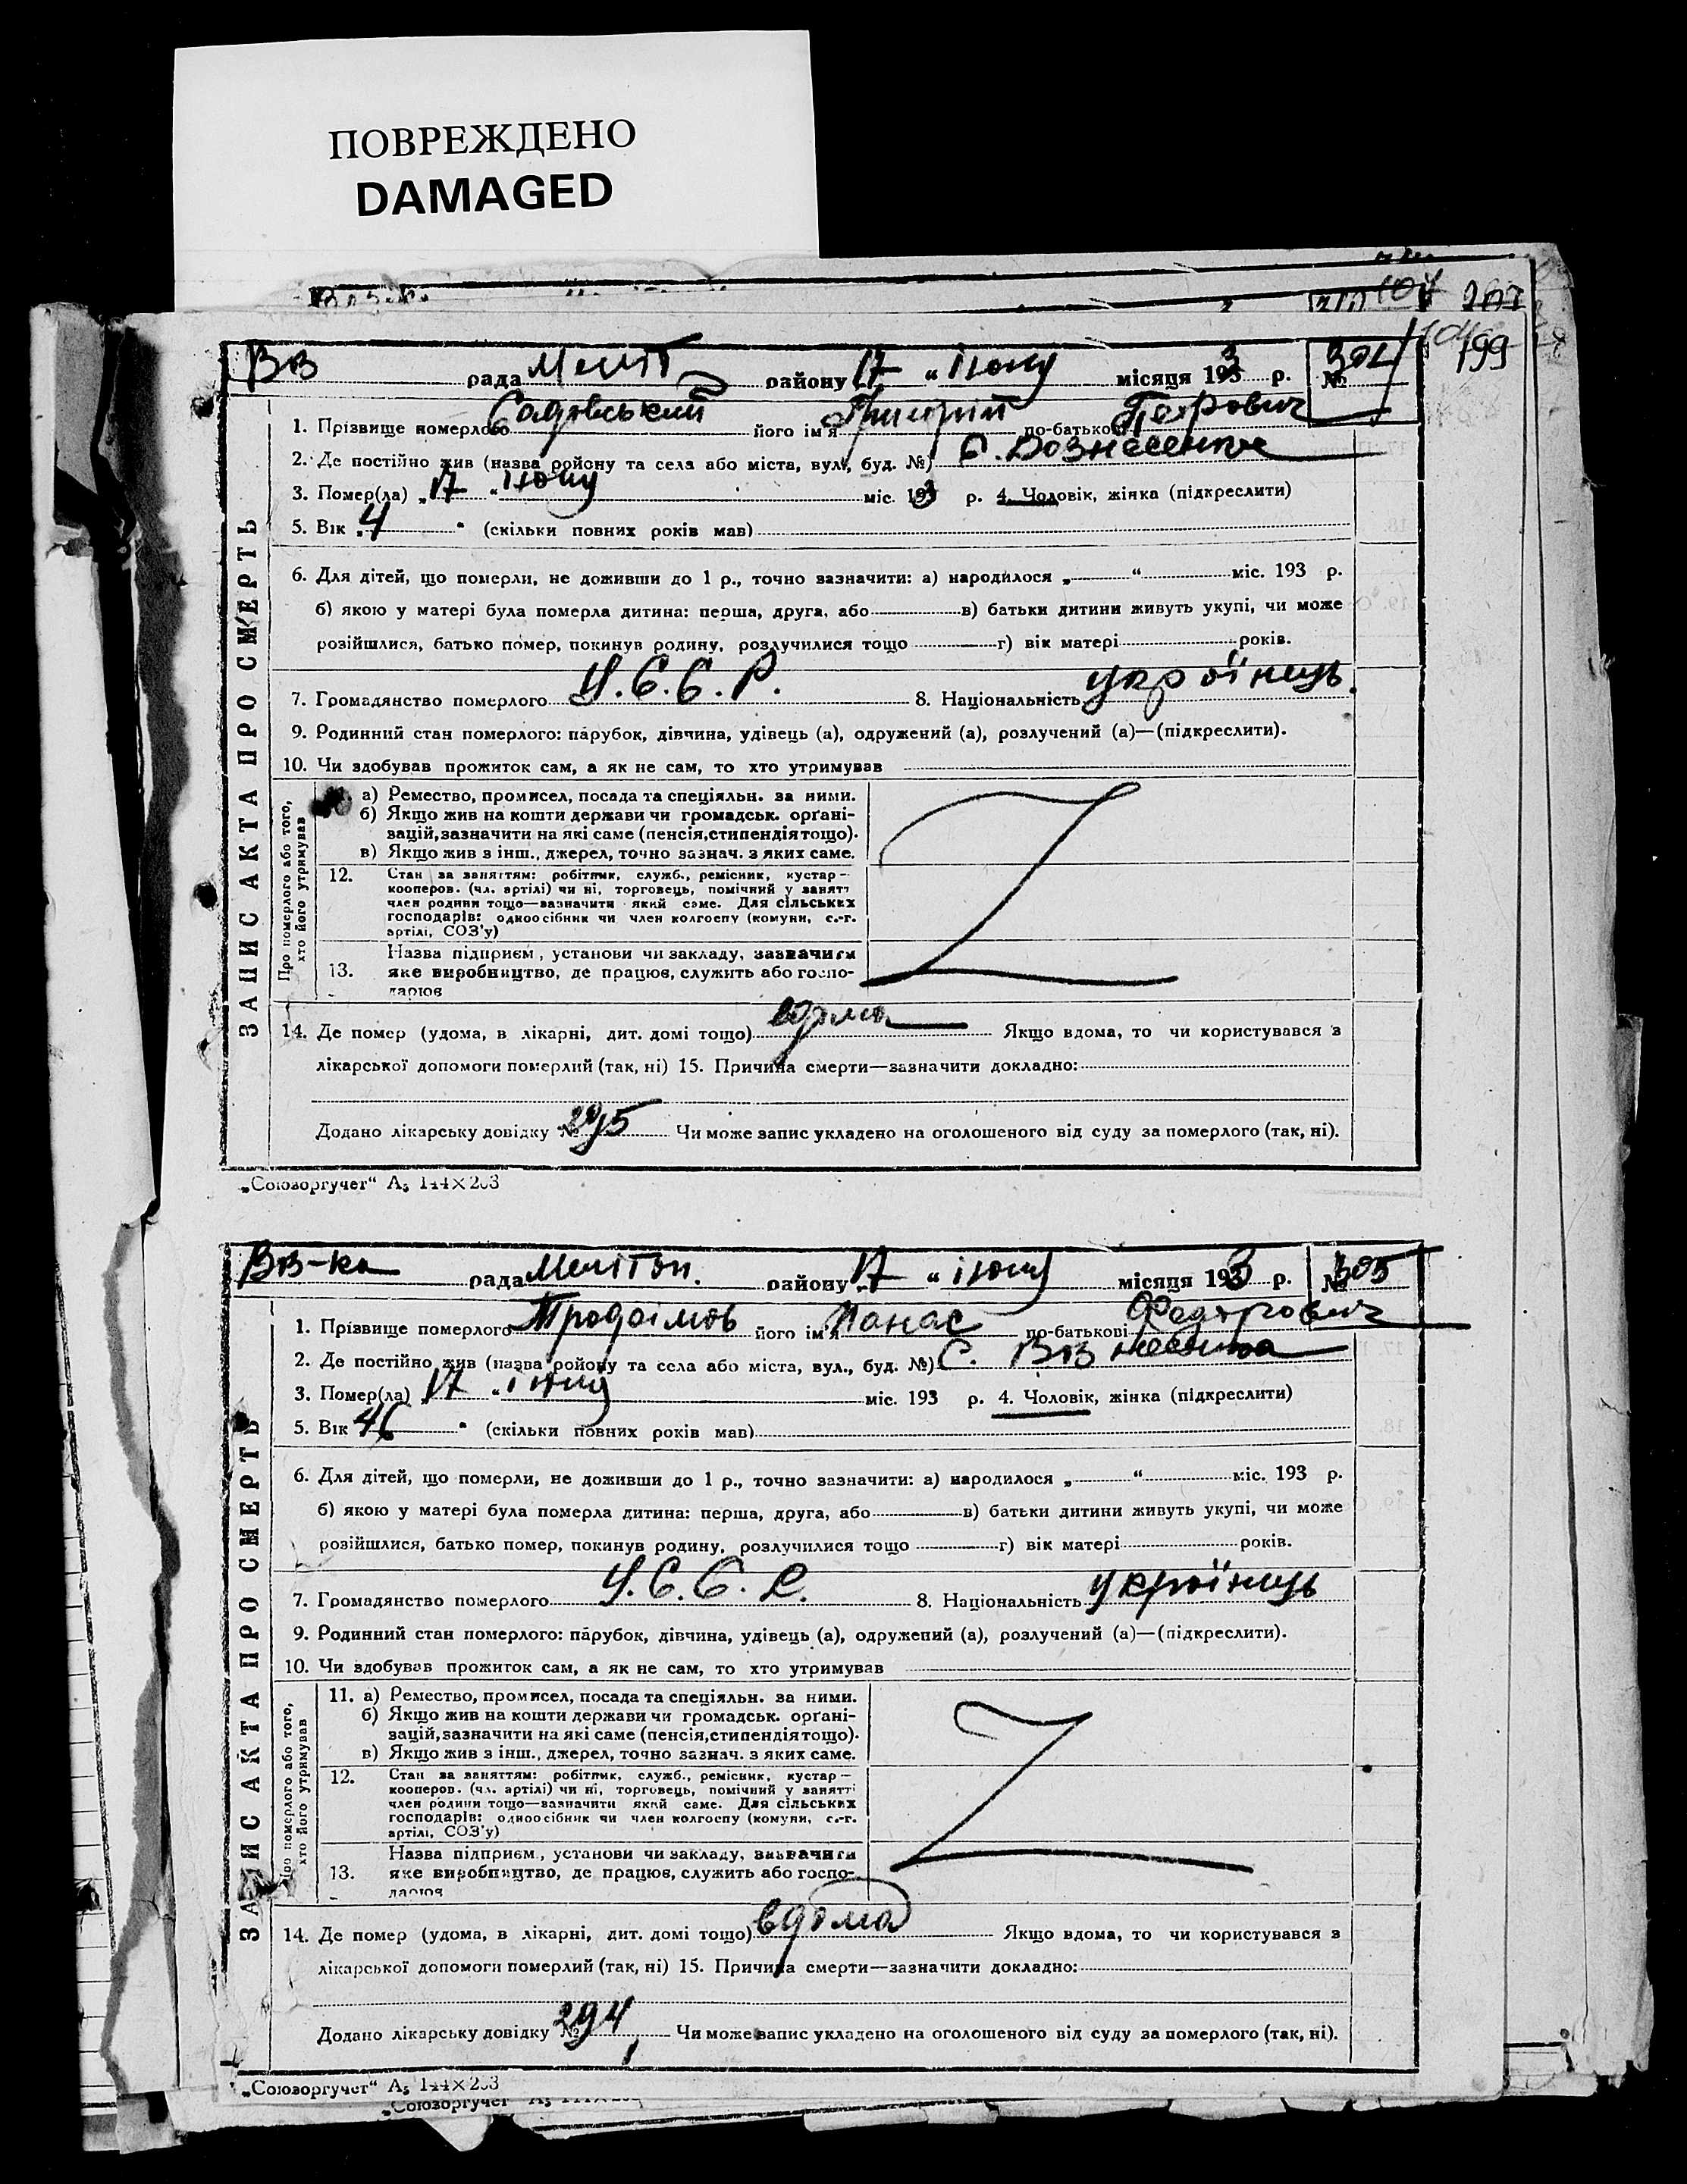 ПОВРЕЖДЕНО
DAMAGED
199
Вз рада Меліт району 17 " іюну місяця 193 3 р. № 304
1. Прізвище померлого Садовський його ім'я Григорій по-батькові Петрович
2. Де постійно жив (назва ройону та села або міста, вул., буд. №) С. Вознесенка
3. Помер(ла) „ 17 " іюну міс. 193 3 р. 4. Чоловік, жінка (підкреслити)
5. Вік „ 4 " (скільки повних років мав)
6. Для дітей, що померли, не доживши до 1 р., точно зазначити: а) народилося „ " міс. 193 р.
б) якою у матері була померла дитина: перша, друга, або в) батьки дитини живуть укупі, чи може
розійшлися, батько помер, покинув родину, розлучилися тощо г) вік матері років.
7. Громадянство померлого У.С.С.Р. 8. Національність українець
9. Родинний стан померлого: парубок, дівчина, удівець (а), одружений (а), розлучений (а)—(підкреслити).
10. Чи здобував прожиток сам, а як не сам, то хто утримував
ЗАПИС АКТА ПРО СМЕРТЬ
Про померлого або того, хто його утримував
а) Ремество, промисел, посада та спеціяльн. за ними.
б) Якщо жив на кошти держави чи громадськ. орґані-
зацій, зазначити на які саме (пенсія, стипендія тощо).
в) Якщо жив з інш., джерел, точно зазнач. з яких саме.
12. Стан за заняттям: робітник, служб., ремісник, кустар—
кооперов. (чл. артілі) чи ні, торговець, помічний у занятті
член родини тощо—зазначити який саме. Для сільських
господарів: одноосібник чи член колгоспу (комуни, с.-г.
артілі, СОЗ'у)
13. Назва підприєм., установи чи закладу, зазначити
яке виробництво, де працює, служить або госпо-
дарює
14. Де помер (удома, в лікарні, дит. домі тощо) вдома Якщо вдома, то чи користувався з
лікарської допомоги померлий (так, ні) 15. Причина смерти—зазначити докладно:
Додано лікарську довідку № 295 Чи може запис укладено на оголошеного від суду за померлого (так, ні).
„Союзоргучет" А5 144×203
Вз-ка рада Мелітоп. району 17 " іюну місяця 193 3 р. № 305
1. Прізвище померлого його ім'я Панас по-батькові Федорович
2. Де постійно жив (назва ройону та села або міста, вул., буд. №) С. Вознесенка
3. Помер(ла) 17 " іюну міс. 193 р. 4. Чоловік, жінка (підкреслити)
5. Вік 46 " (скільки повних років мав)
6. Для дітей, що померли, не доживши до 1 р., точно зазначити: а) народилося „ " міс. 193 р.
б) якою у матері була померла дитина: перша, друга, або в) батьки дитини живуть укупі, чи може
розійшлися, батько помер, покинув родину, розлучилися тощо г) вік матері років.
7. Громадянство померлого У.С.С.Р. 8. Національність українець
9. Родинний стан померлого: парубок, дівчина, удівець (а), одружений (а), розлучений (а)—(підкреслити).
10. Чи здобував прожиток сам, а як не сам, то хто утримував
ЗАПИС АКТА ПРО СМЕРТЬ
Про померлого або того, хто його утримував
11. а) Ремество, промисел, посада та спеціяльн. за ними.
б) Якщо жив на кошти держави чи громадськ. орґані-
зацій, зазначити на які саме (пенсія, стипендія тощо).
в) Якщо жив з інш., джерел, точно зазнач. з яких саме.
12. Стан за заняттям: робітник, служб., ремісник, кустар—
кооперов. (чл. артілі) чи ні, торговець, помічний у занятті
член родини тощо—зазначити який саме. Для сільських
господарів: одноосібник чи член колгоспу (комуни, с.-г.
артілі, СОЗ'у)
13. Назва підприєм., установи чи закладу, зазначити
яке виробництво, де працює, служить або госпо-
дарює
14. Де помер (удома, в лікарні, дит. домі тощо) вдома Якщо вдома, то чи користувався з
лікарської допомоги померлий (так, ні) 15. Причина смерти—зазначити докладно:
Додано лікарську довідку № 294 Чи може запис укладено на оголошеного від суду за померлого (так, ні).
„Союзоргучет" А5 144×203
„Союзоргучет"